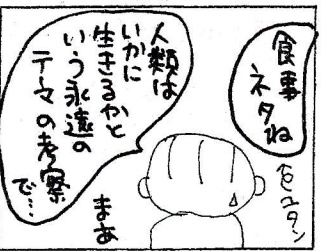 食事
ネタね
人類は
いかに
生きるかと
いう永遠の
テーマの考察
で…
まあ